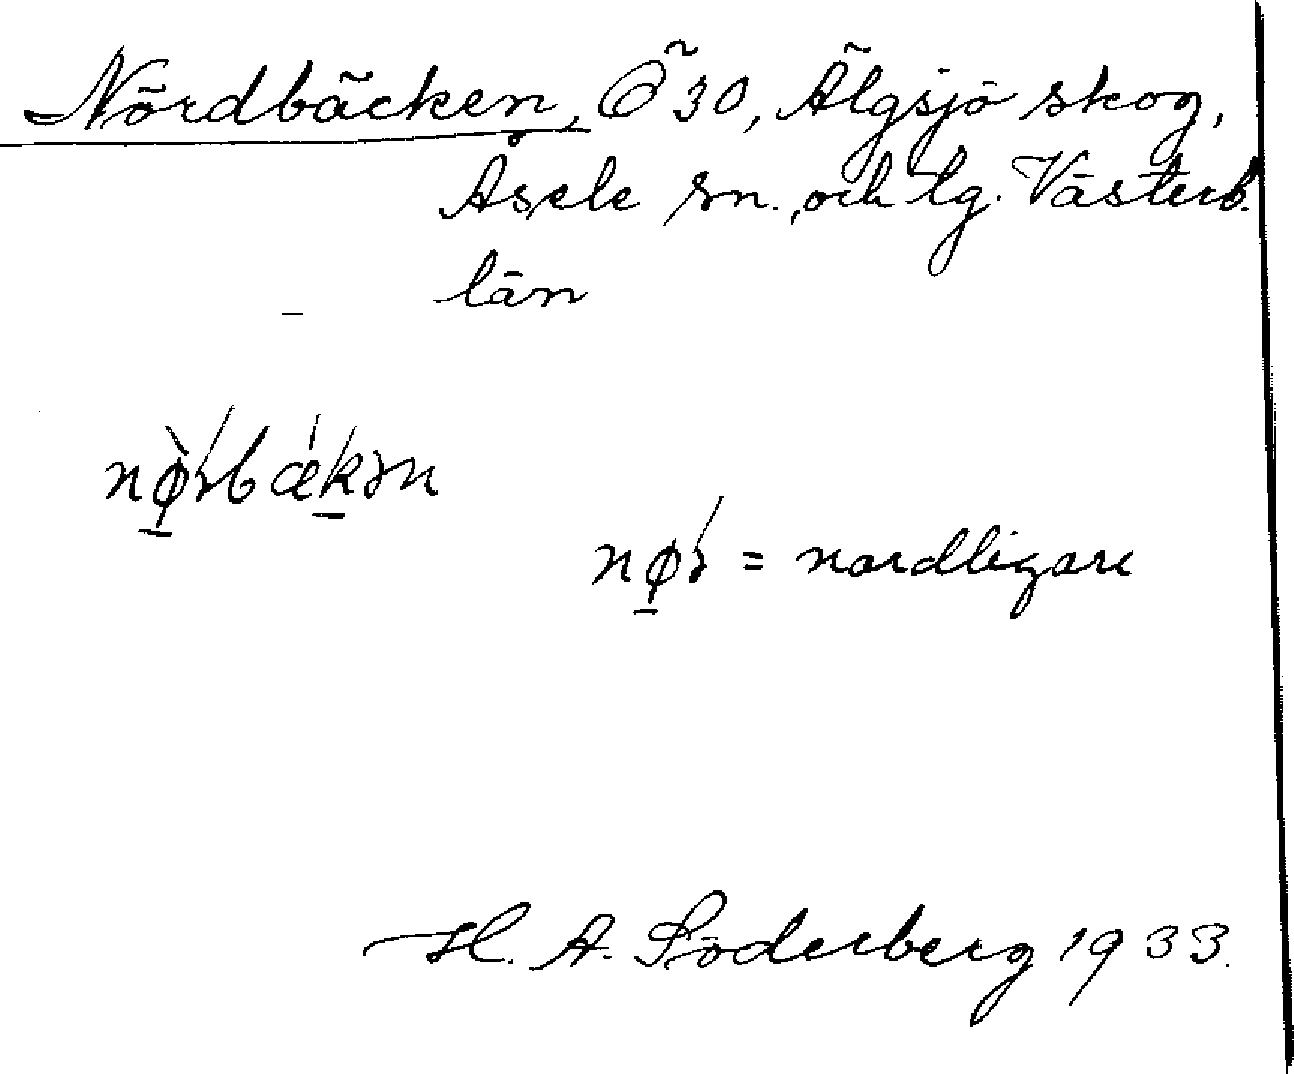 Nördbäcken, Ö 30, Älgsjö skog,
Åsele sn. och lg. Västerb.
län
= nordligare
H. A. Söderberg 1933.